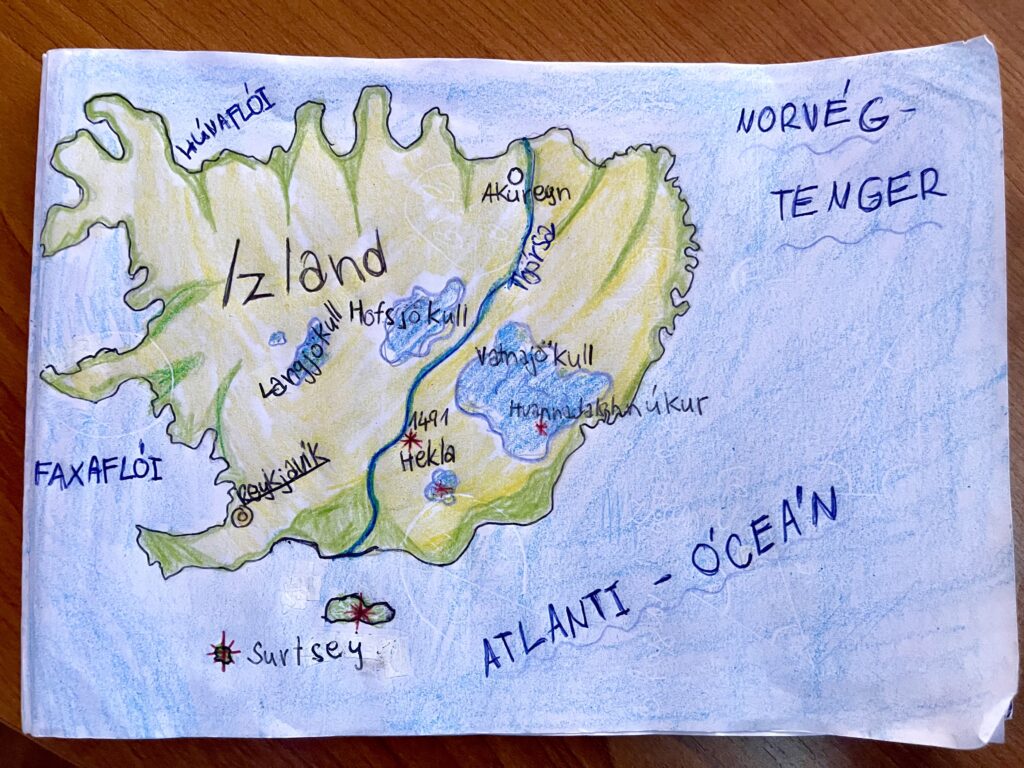 HÚNAFLÓI
NORVÉG-
TENGER
Akureyri
Izland
Thjórsa
Hofsjökull
Langjökull
Vatnajökull
Hvannadalshnúkur
1491
Hekla
FAXAFLÓI
Reykjavík
ATLANTI-ÓCEÁN
Surtsey